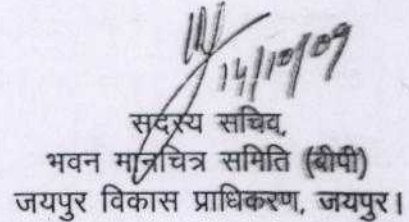 14/10/09
सदस्य सचिव,
भवन मानचित्र समिति (बीपी)
जयपुर विकास प्राधिकरण, जयपुर।